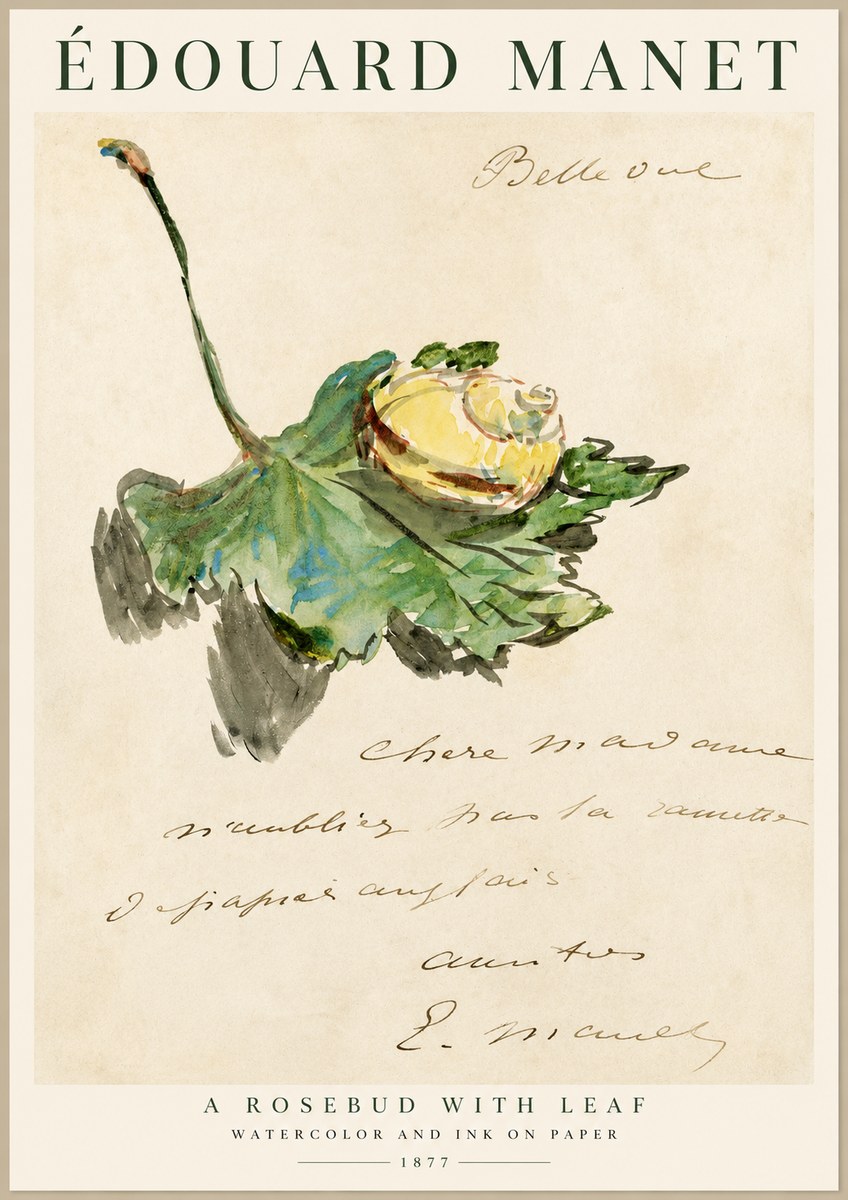 ÉDOUARD MANET
Bellevue
chere madame
n'oubliez pas la
anglais
E. Manet
A ROSEBUD WITH LEAF
WATERCOLOR AND INK ON PAPER
1877